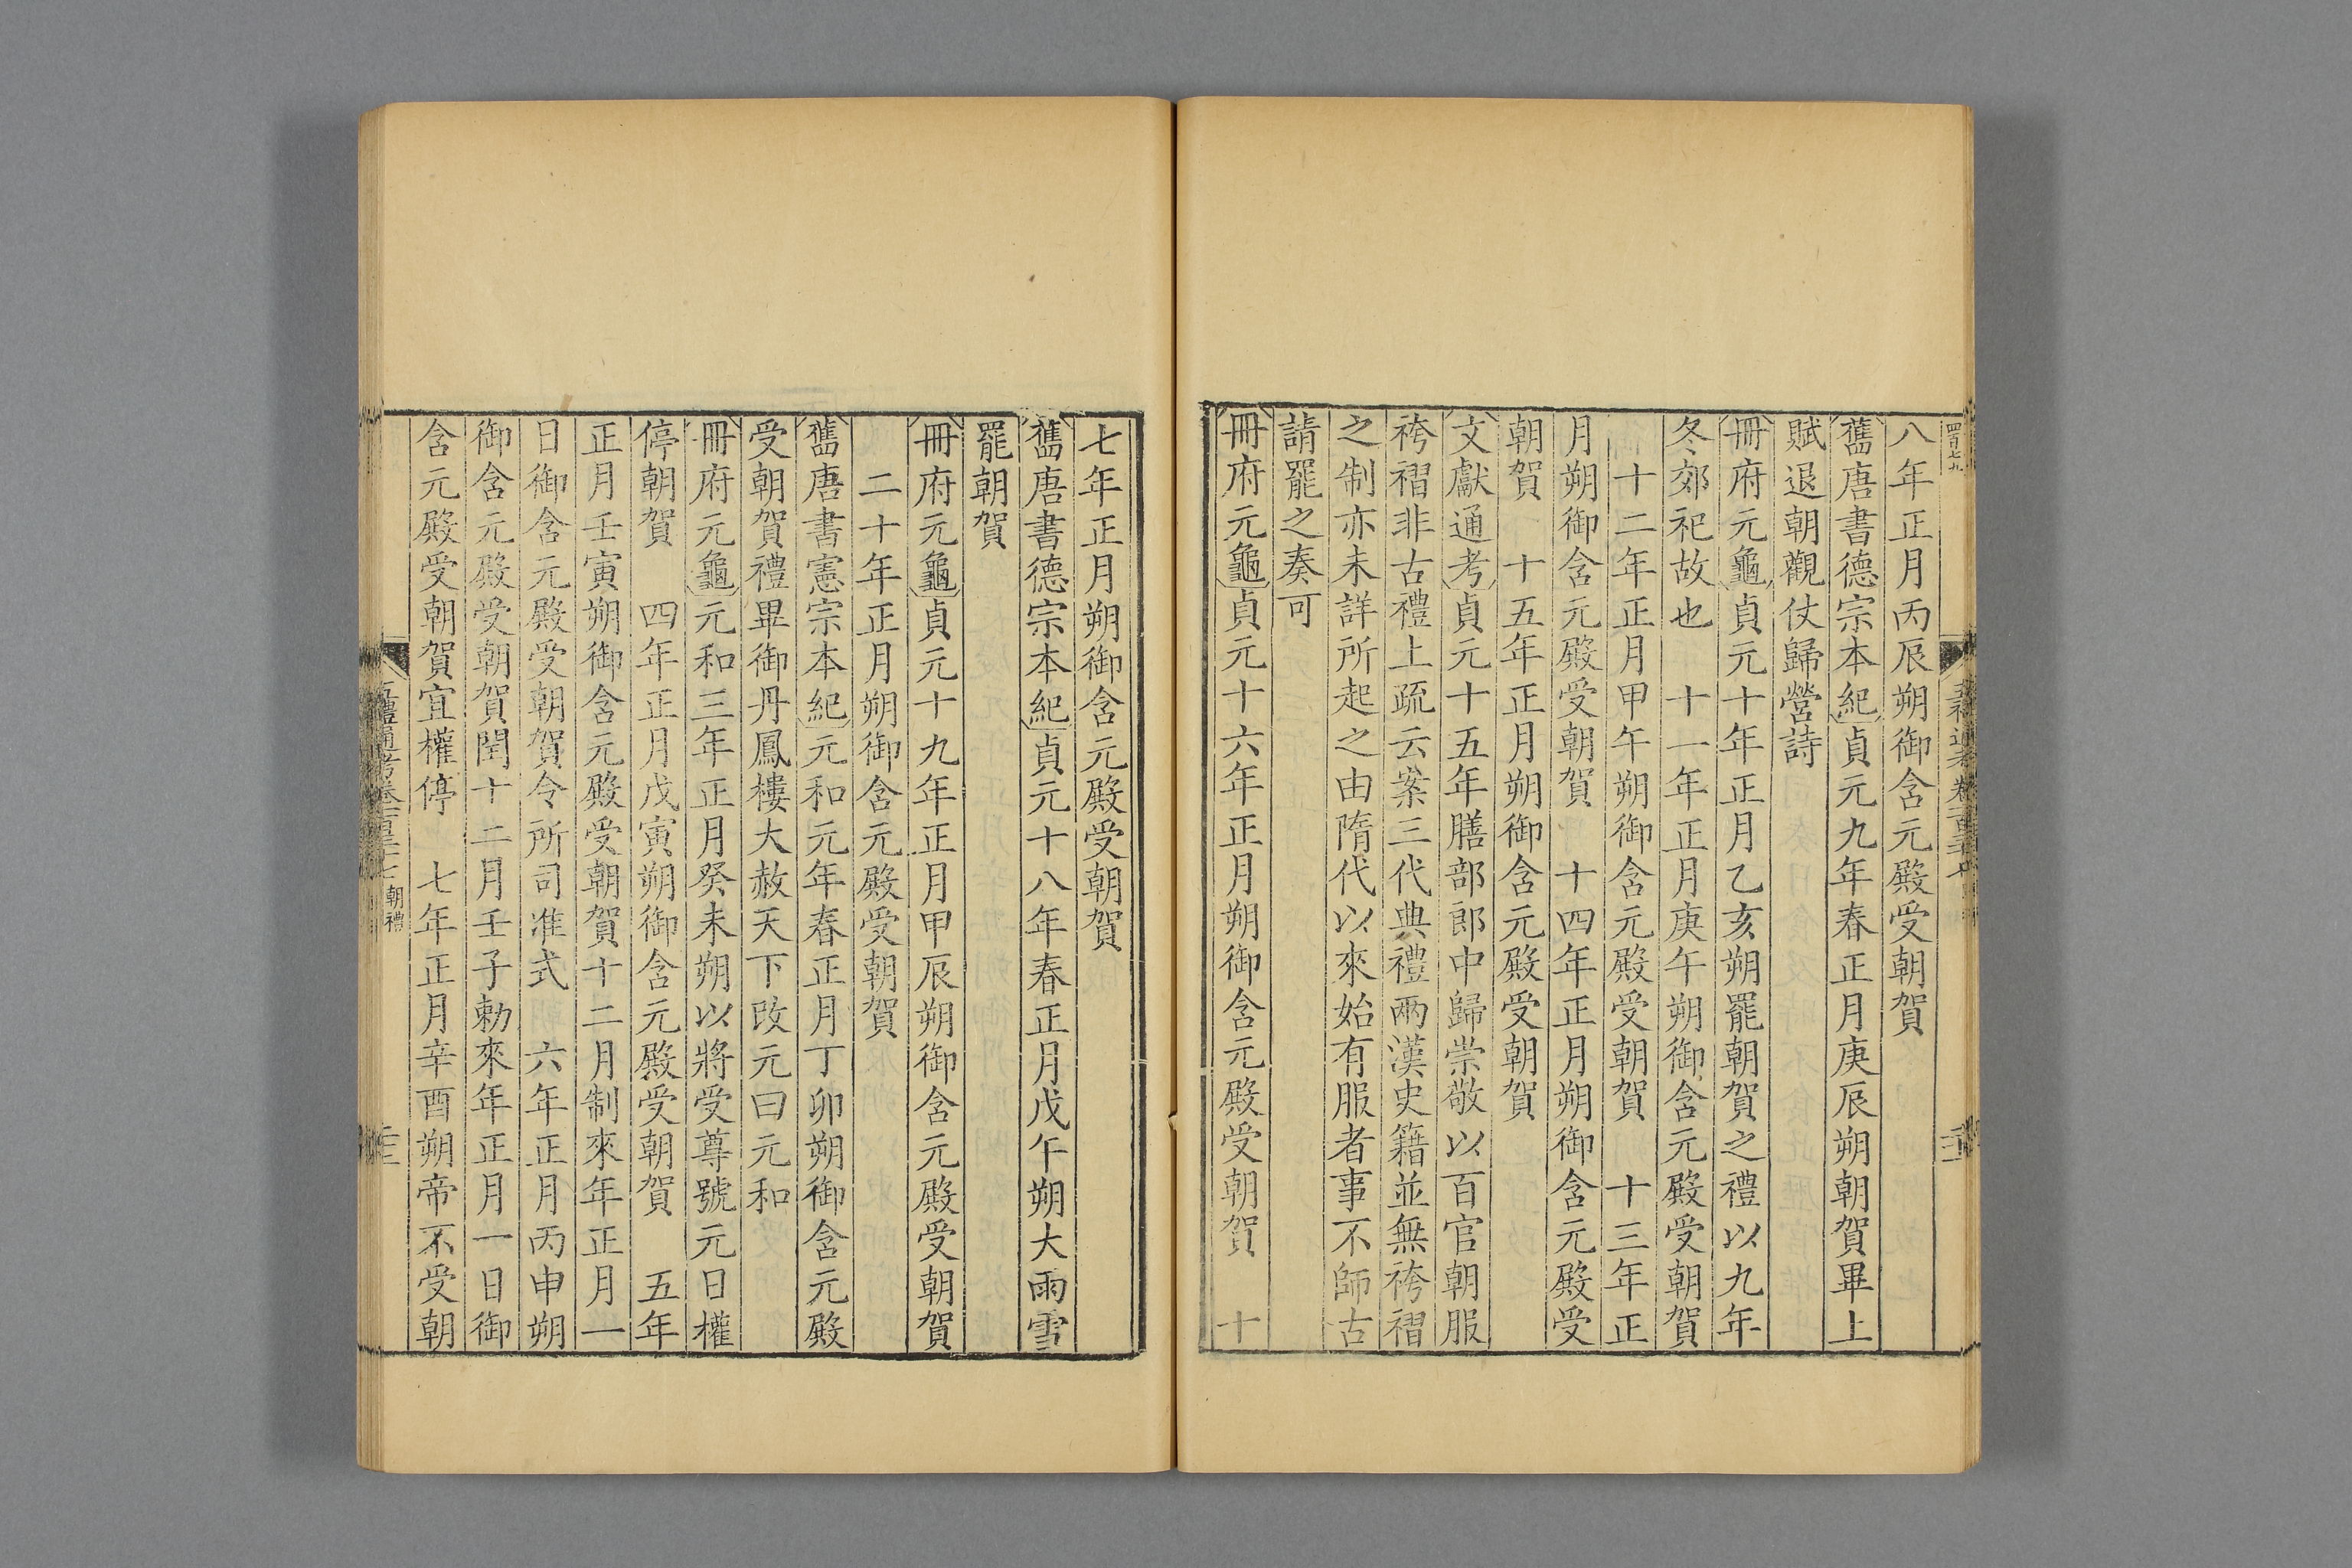 八年正月丙辰朔御含元殿受朝賀
舊唐書德宗本紀貞元九年春正月庚辰朔朝賀畢上
賦退朝觀仗歸營詩
冊府元龜貞元十年正月乙亥朔罷朝賀之禮以九年
冬郊祀故也　十一年正月庚午朔御含元殿受朝賀
十二年正月甲午朔御含元殿受朝賀　十三年正
月朔御含元殿受朝賀　十四年正月朔御含元殿受
朝賀　十五年正月朔御含元殿受朝賀
文獻通考貞元十五年膳部郎中歸崇敬以百官朝服
袴褶非古禮上疏云案三代典禮兩漢史籍並無袴褶
之制亦未詳所起之由隋代以來始有服者事不師古
請罷之奏可
冊府元龜貞元十六年正月朔御含元殿受朝賀　十
七年正月朔御含元殿受朝賀
舊唐書德宗本紀貞元十八年春正月戊午朔大雨雪
罷朝賀
冊府元龜貞元十九年正月甲辰朔御含元殿受朝賀
二十年正月朔御含元殿受朝賀
舊唐書憲宗本紀元和元年春正月丁卯朔御含元殿
受朝賀禮畢御丹鳳樓大赦天下改元曰元和
冊府元龜元和三年正月癸未朔以將受尊號元日權
停朝賀　四年正月戊寅朔御含元殿受朝賀　五年
正月壬寅朔御含元殿受朝賀十二月制來年正月一
日御含元殿受朝賀令所司准式　六年正月丙申朔
御含元殿受朝賀閏十二月壬子勑來年正月一日御
含元殿受朝賀宜權停　七年正月辛酉朔帝不受朝
朝禮